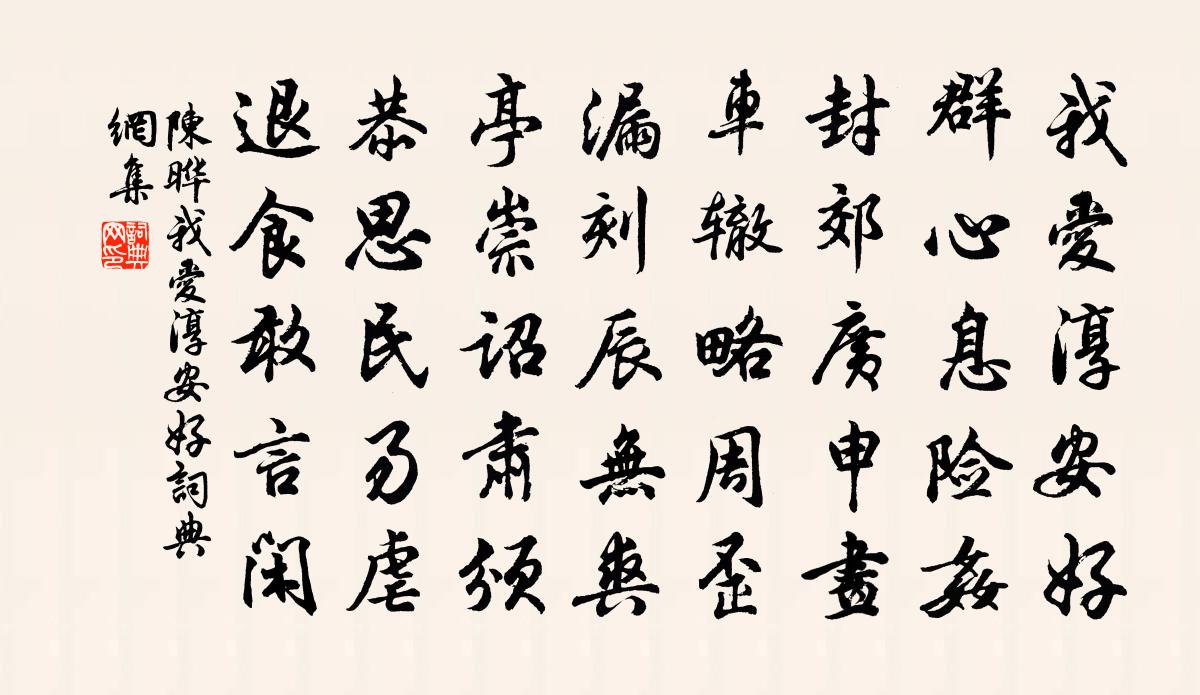 我愛淳安好
群心息险姦
封郊廣申畫
車辙略周歪
漏刻辰無爽
亭崇詔肅頒
恭思民勿虐
退食敢言閑
陳晔我愛淳安好詞典
網集
詞典网印